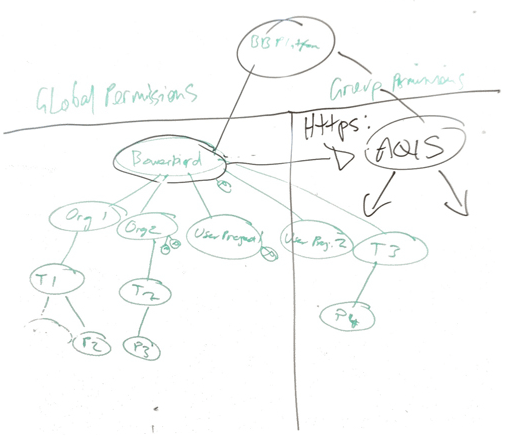 BB Platform
Global Permissions
Group Permissions
Https:
AQIS
Bowerbird
Org 1
Org 2
User Project 1
User Proj. 2
T3
T1
T2
P4
P2
P3